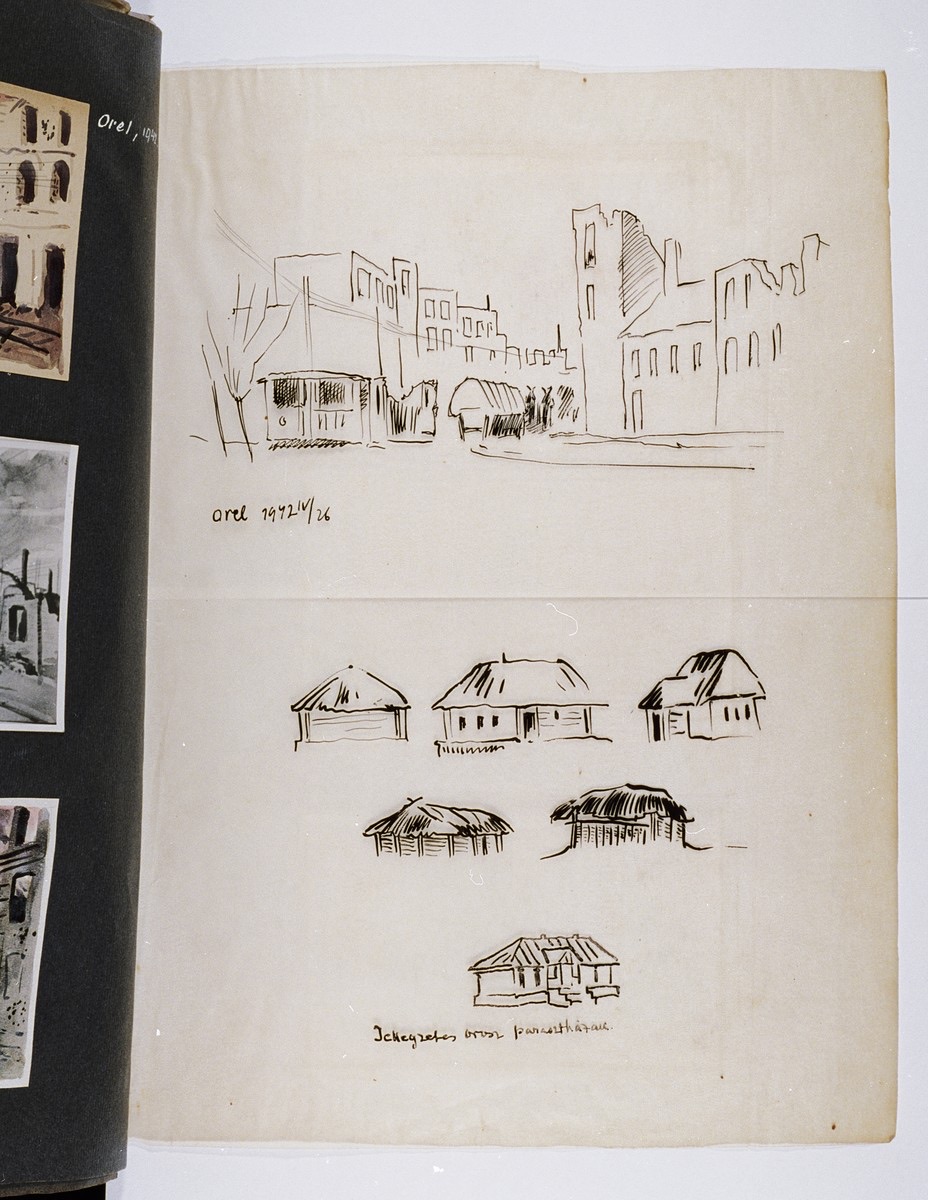 Orel, 194
Orel 1942 IV/26
Jellegzetes orosz parasztházak.